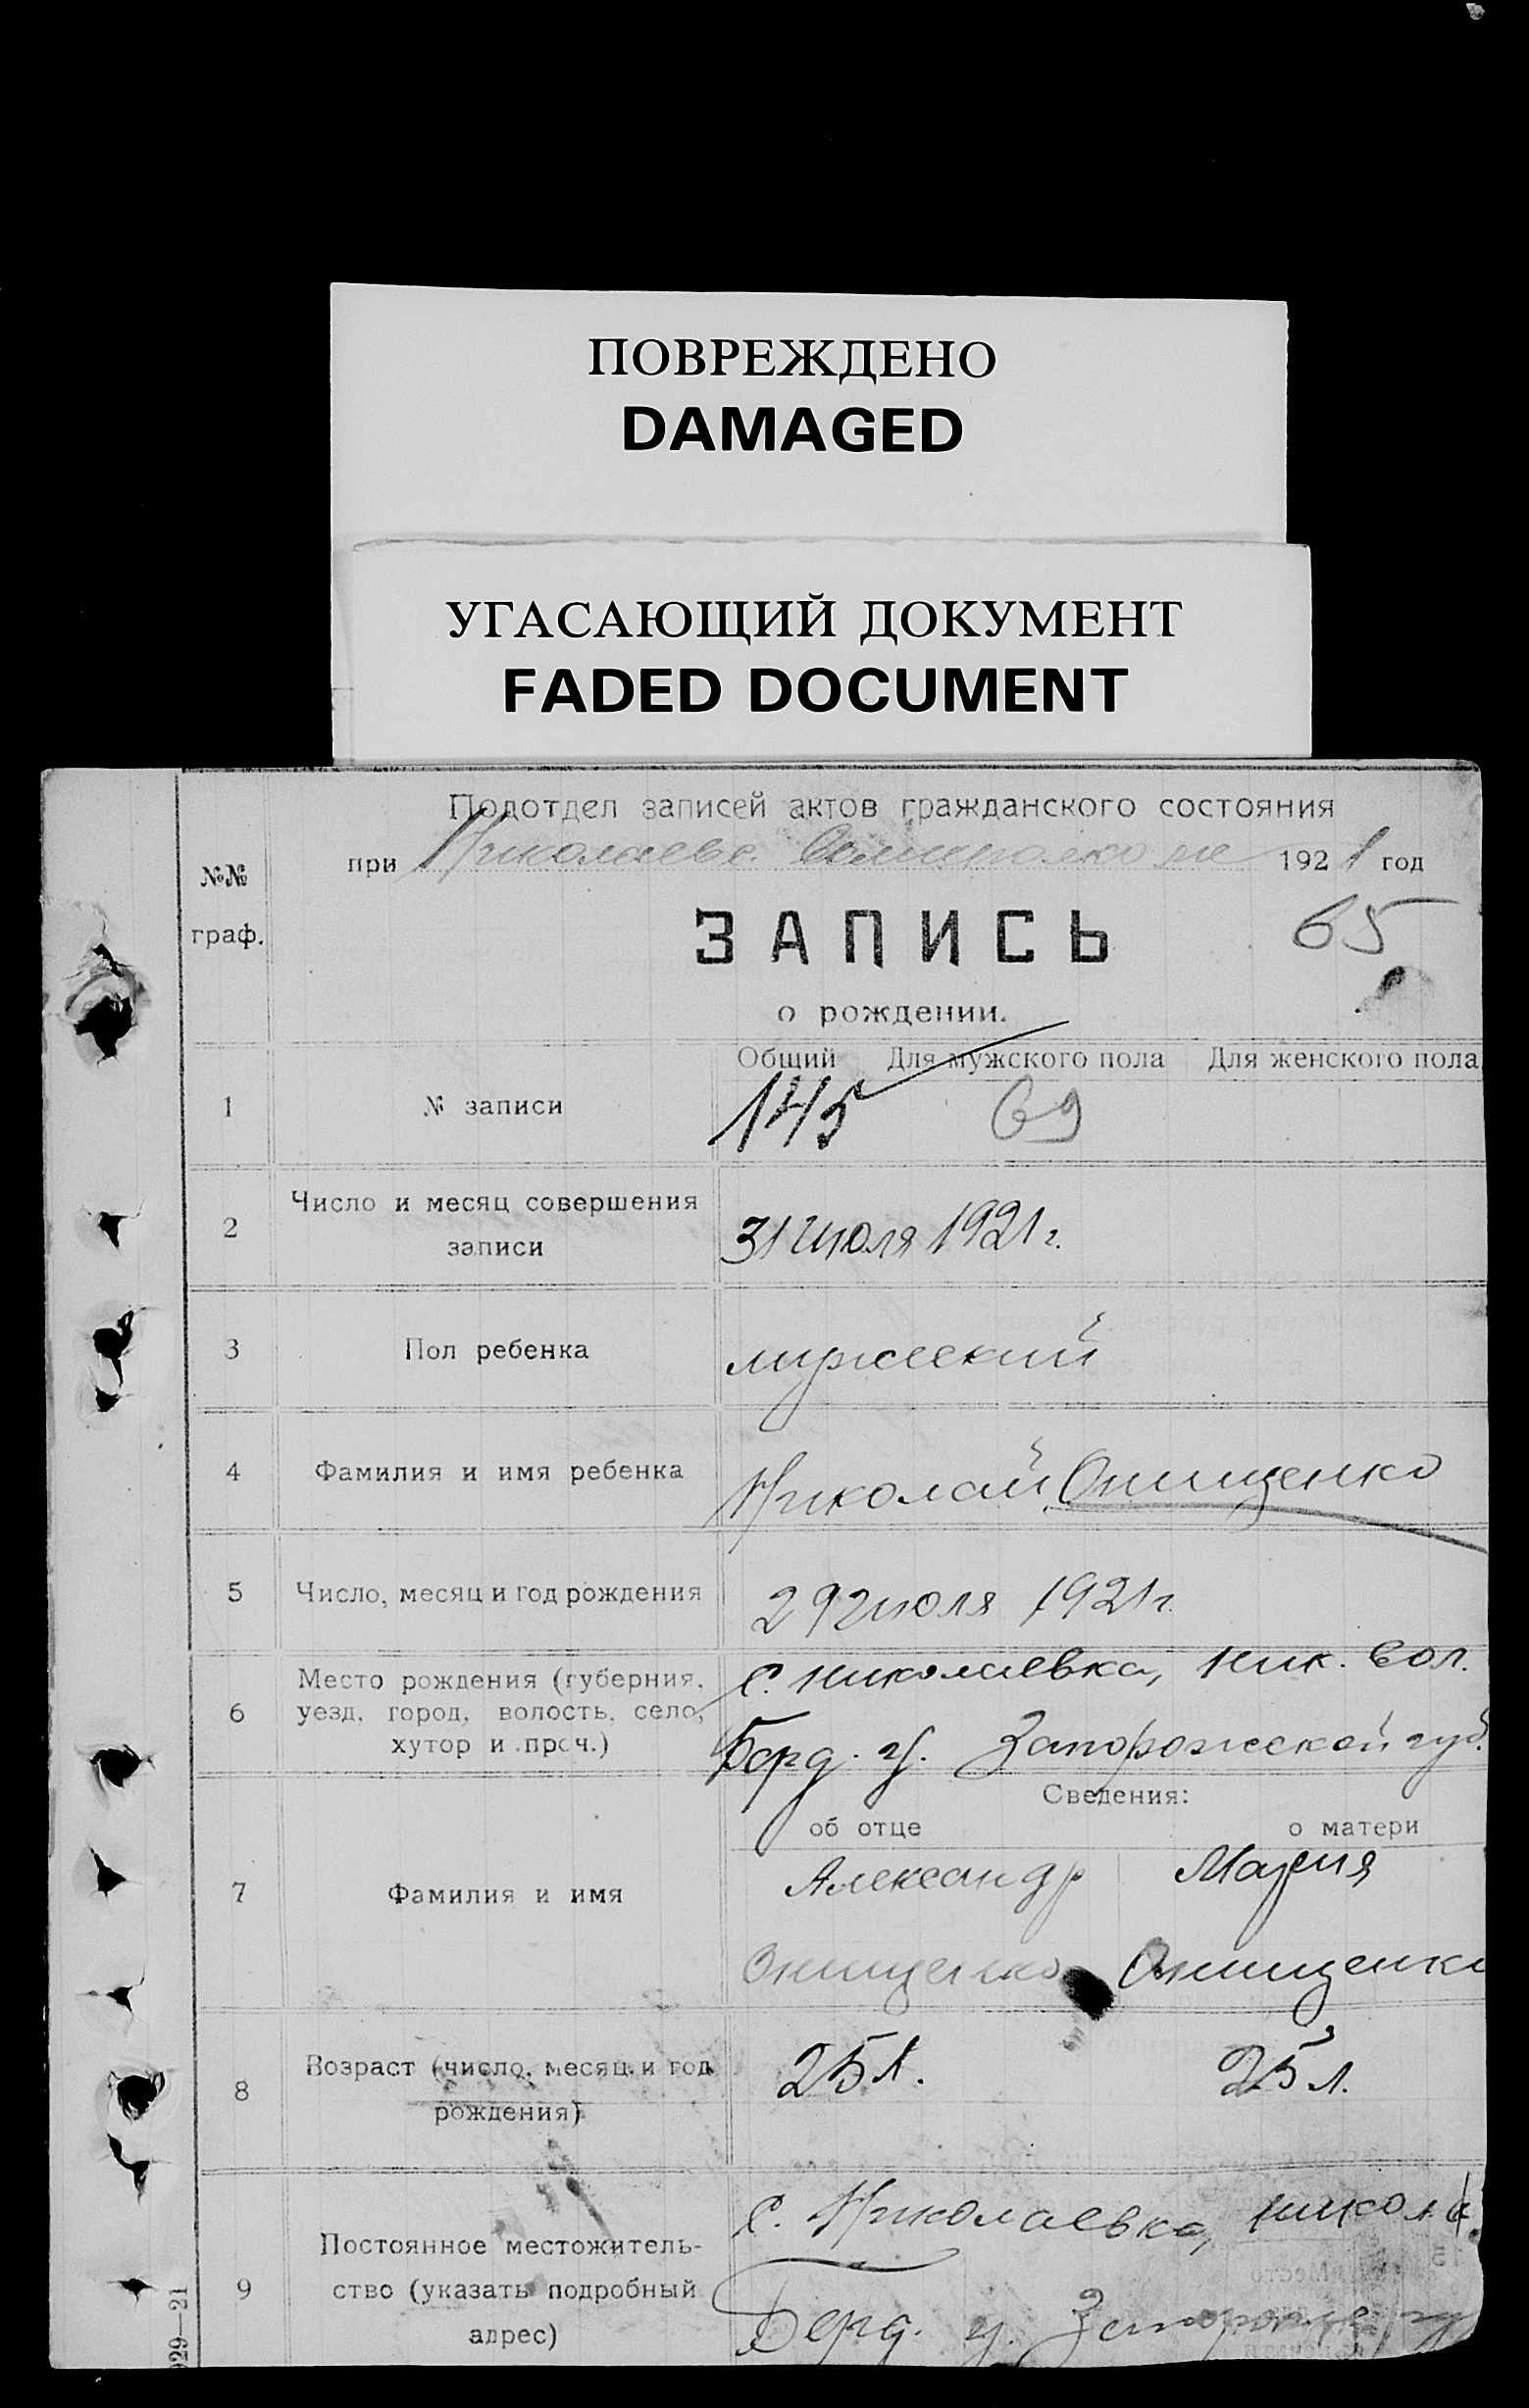 ПОВРЕЖДЕНО
DAMAGED
УГАСАЮЩИЙ ДОКУМЕНТ
FADED DOCUMENT
Подотдел записей актов гражданского состояния
при Николаевс. 1921 год
№№
граф.
ЗАПИСЬ
65
о рождении.
Общий Для мужского пола Для женского пола
1 № записи 145 69
2 Число и месяц совершения
записи
31 июля 1921 г.
3 Пол ребенка мужеский
4 Фамилия и имя ребенка Николай Онищенко
5 Число, месяц и год рождения 29 июля 1921 г.
6 Место рождения (губерния,
уезд, город, волость, село,
хутор и проч.)
с. Николаевка, Ник. вол.
Берд. у. Запорожской губ.
Сведения:
об отце о матери
7 Фамилия и имя
Александр Мария
Онищенко Онищенко
8 Возраст (число, месяц и год
рождения)
25 л. 25 л.
9 Постоянное местожитель-
ство (указать подробный
адрес)
с. Николаевка,
Берд. у.
929—21